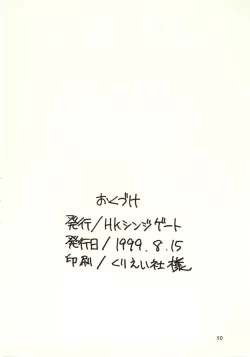 おくづけ
発行/HKシンジゲート
発行日/1999.8.15
印刷/くりえい社様
50